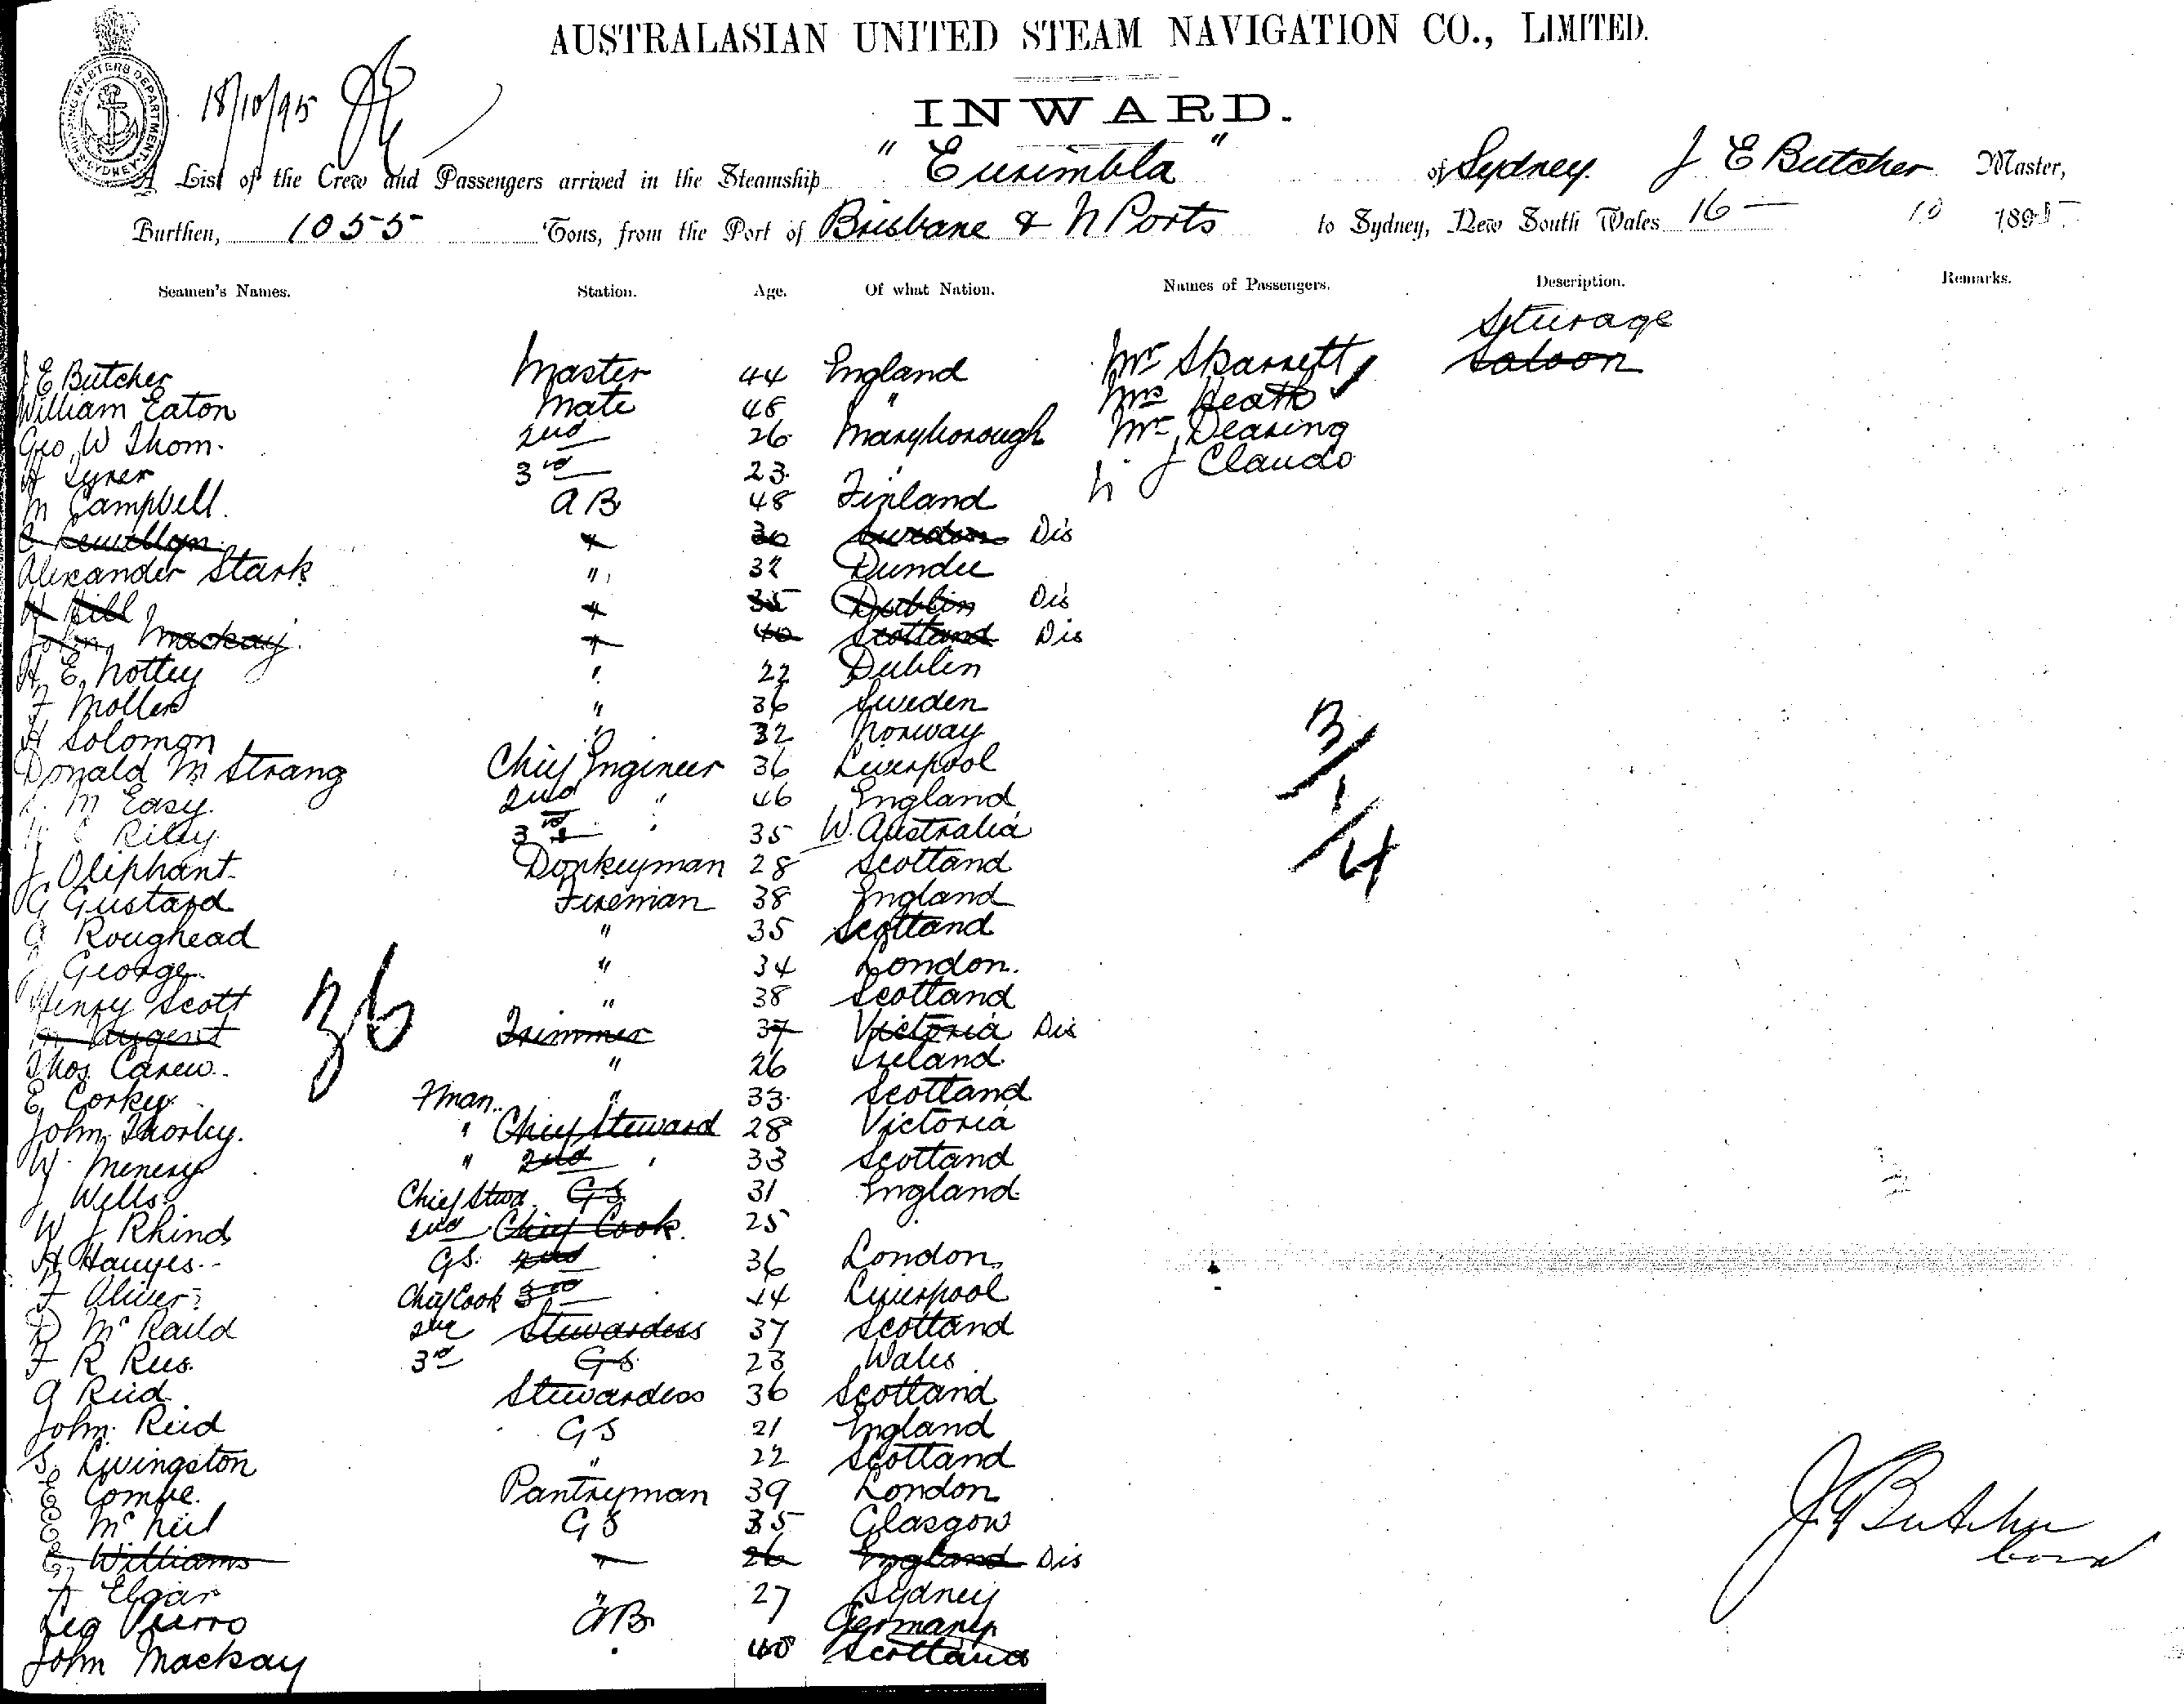 AUSTRALASIAN UNITED STEAM NAVIGATION CO., LIMITED.
SHIPPING MASTERS DEPARTMENT SYDNEY
18/10/95
INWARD.
A List of the Crew and Passengers arrived in the Steamship "Eurimbla" of Sydney. J E Butcher Master,
Burthen, 1055 Tons, from the Port of Brisbane & N Ports to Sydney, New South Wales 16 — 10 1895
Seamen's Names. Station. Age. Of what Nation. Names of Passengers. Description. Remarks.
Sturage
J E Butcher Master 44 England Mr Skarrett Saloon
William Eaton Mate 48 " Mrs Heath
Geo W Thom. 2nd 26 Maryborough Mr Dearing
A Tyrer 3rd 23. J Claudo
M Campbell. AB 48 Finland
30 Sweden Dis
Alexander Stark " 32 Dundee
W Hill 35 Dublin Dis
John Mackay. 40 Scotland Dis
H E Nottey " 22 Dublin
F Moller " 36 Sweden
H Solomon " 32 Norway
Donald M Strang Chief Engineer 36 Liverpool
M Easy. 2nd " 46 England
Riley 3rd " 35 W. Australia
J Oliphant Donkeyman 28 Scotland
G Gustard Fireman 38 England
Roughead " 35 Scotland
George " 34 London.
Henry Scott " 38 Scotland
Nugent Trimmer 37 Victoria Dis
Thos Carew " 26 Ireland
E Corkey Fman. " 33 Scotland
John Thorley. " Chief Steward 28 Victoria
W Menery " 2nd " 33 Scotland
J Wells Chief Stwd. GS 31 England
W J Rhind 2nd Chief Cook. 25
H Hauyes GS. 2nd 36 London
F Oliver Chief Cook 3rd 44 Liverpool
D McRaild 2nd Stewardess 37 Scotland
F R Rees. 3rd GS 23 Wales
A Reid Stewardess 36 Scotland
John Reid GS 21 England
S Livingston " 22 Scotland
E Combe. Pantryman 39 London
E McNeil GS 35 Glasgow
E Williams " 26 England Dis
F Elgar " 27 Sydney
AB Germany
John Mackay 40 Scotland
36
13/1/4
J E Butcher